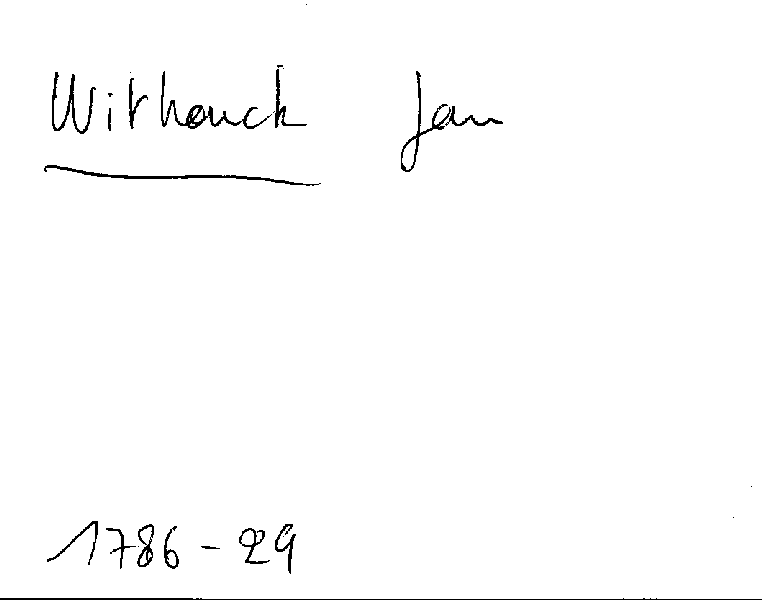 Withouck Jan
1786-29